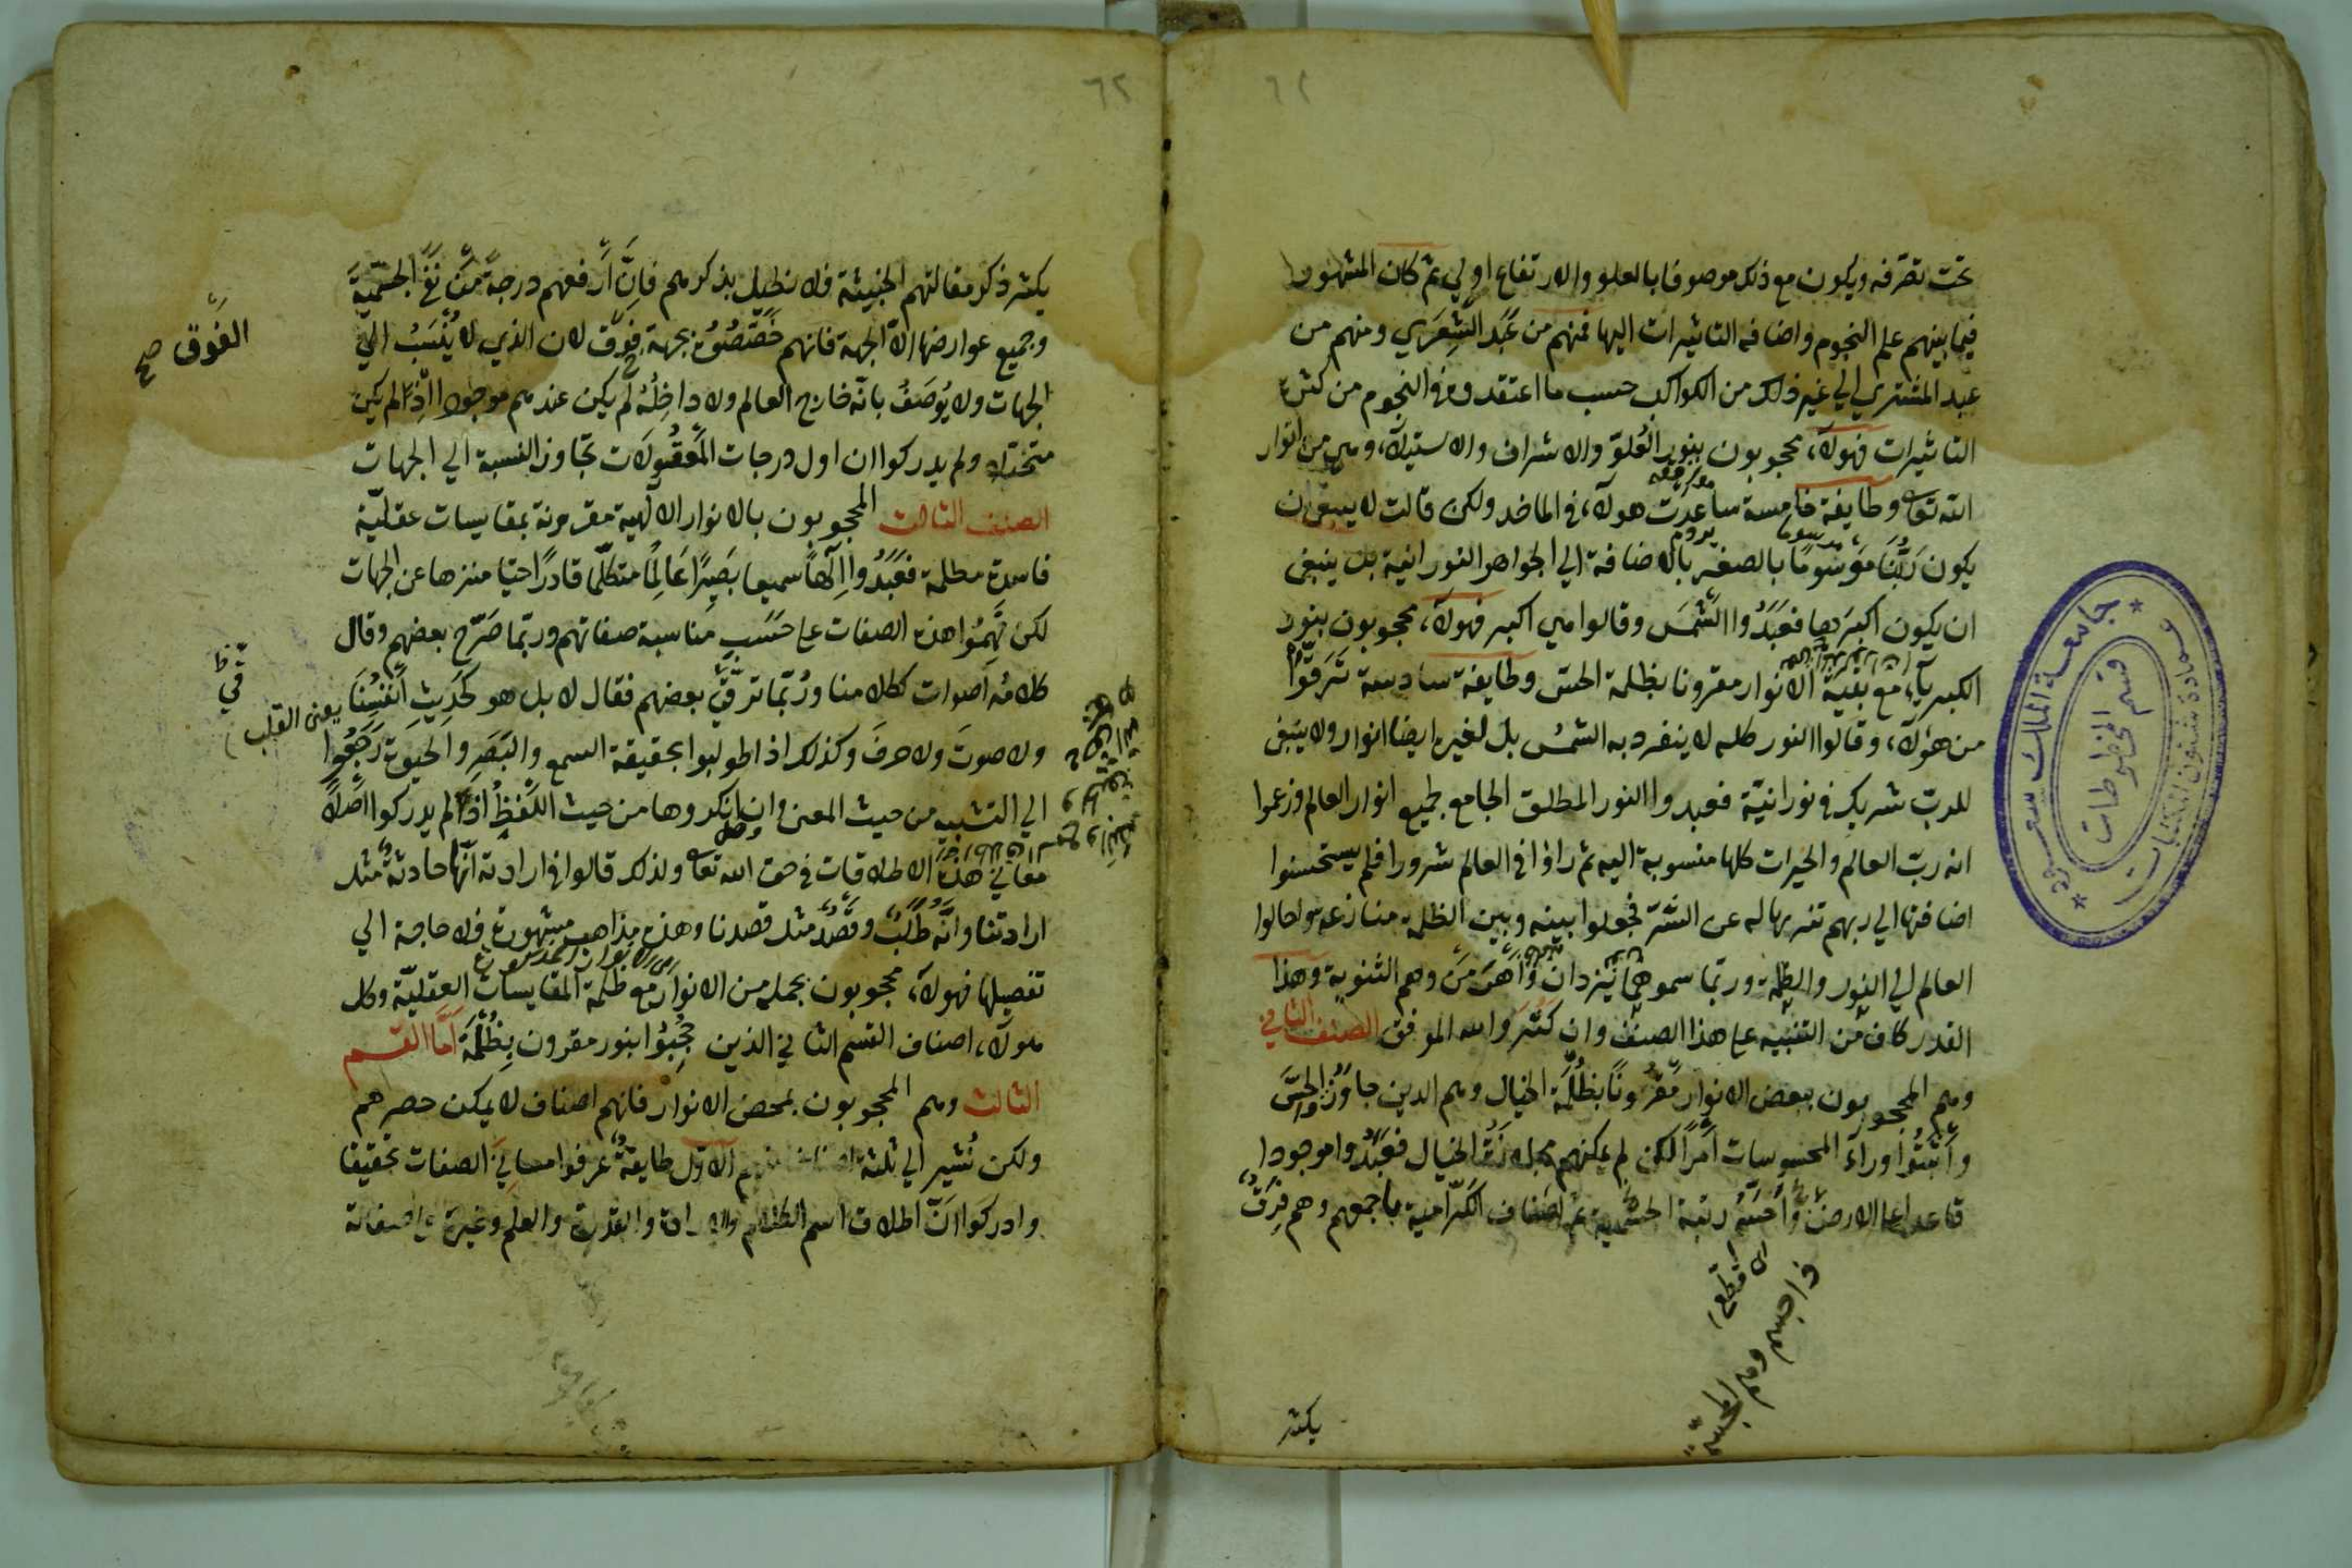 ٦٢
تحت تصرفه ويكون مع ذلك موصوفا بالعلو والارتفاع اولي ثم كان المشهور
فيما بينهم علم النجوم واضافه التاثيرات اليها فمنهم من عَبَد الشِعرَي ومنهم من
عبد المشتري الي غير ذلك من الكواكب حسب ما اعتقدوه في النجوم من كثرة
التاثيرات فهولآء محجوبون بنور العُلوّ والاشراف والاستيلآء وهي من انوار
الله تعا وطايفة خامسة ساعدت هولآء في الماخذ ولكن قالت لا ينبغي ان
يكون رَبُّنَا مَوسُومًا بالصغر بالاضافة الي الجواهر النورانية بل ينبغي
ان يكون اكبرَها فعَبَدُوا الشَّمسَ وقالوا هي اكبر فهولآء محجوبون بنور
الكبريآء مع بقيّة الانوار مقرونا بظلمة الحس وطايفة سادسة تَرَقَّوا
من هؤلآء وقالوا النور كله لا ينفرد به الشمسُ بل لغيره ايضا انوار ولا ينبغي
للربّ شريك في نورانيّة فعبدوا النور المطلق الجامع لجميع انوار العالم وزعموا
انه ربّ العالم والخيرات كلها منسوبة اليه ثم راوا في العالم شرورا فلم يستحسنوا
اضافتها الي ربهم تنزيها له عن الشرّ فجعلوا بينه وبين الظلمة منازعه واحالوا
العالم الي النور والظلمة وربّما سموهما يَزدان وَأَهرَمَن وهم الثنوية وهذا
القدر كافٍ من التنبيه على هذا الصنف وان كَثُرَ والله الموفق الصنف الثاني
وهم المحجوبون ببعض الانوار مقرُونًا بظُلمَة الخيال وهم الذين جاوَزُوا الحِسَّ
وأثبَتُوا ورآء المحسوسات أمرًا لكن لم يمكنهم مجاوزة الخيال فعَبَدُوا موجودا
قاعدا على الارض وأخسّهُ رتبة الجسمية ثم اصناف الكَرّاميّة باجمعهم وهم فِرَقٌ
يكثر
جامعة الملك سعود
عمادة شئون المكتبات
قسم المخطوطات
٦٢
يكثر ذكر مقالتهم الخبيثة فلا نطيل بذكرهم فانّ أرفعهم درجةً مَن نَفَي الجسميّةَ
وجميع عوارضها الّا الجهة فانهم خَصَّصُوهُ بجهة فَوق لان الذي لا يُنسَبُ الي
الفَوق صح
الجهات ولا يُوصَفُ بانّه خارج العالم ولا داخِلُهُ لم يكن عندهم موجودا اذ لم يكن
متخيّلا ولم يدركوا ان اول درجات المَعقُولات تجاوز النسبة الي الجهات
الصنف الثالث المحجوبون بالانوار الالهية مقرونة بمقايسات عقليّة
فاسدة مظلمة فعَبَدُوا إلَهًا سميعا بَصِيرًا عَالِمًا متكلّما قادرًا حيّا منزها عن الجهات
لكن فَهِمُوا هذه الصفات على حَسَبِ مناسبة صفاتهم وربّما صَرَّح بعضهم وقال
كلامُهُ اصوات ككلامنا ورُبّما ترقَّي بعضهم فقال لا بل هو كَحَدِيثِ أنفُسِنَا يعني القلب
ولا صوتَ ولا حرفَ وكذلك اذا طولبوا بحقيقة السمع والبَصَرِ والحيوة رَجَعُوا
الي التشبيه من حيث المعني وان انكروها من حيث اللَّفظُ اذ لم يدركوا اصلًا
معاني هذه الاطلاقات في حق الله تعا ولذلك قالوا في ارادته انّها حادثة مثل
ارادتنا وانّه طَلَبٌ وقصدٌ مثل قصدنا وهذه مذاهب مشهورة فلا حاجة الي
تفصيلها فهولآء محجوبون بجملة من الانوار مع ظلمة المقايسات العقليّة وكل
هولآء اصناف القسم الثاني الذين حُجِبُوا بنور مقرون بِظُلمَة أمّا القسم
الثالث وهم المحجوبون بمحض الانوار فانهم اصناف لا يمكن حصرهم
ولكن نُشير الي ثلثة اصناف منهم الاول طايفةٌ عرفوا معاني الصفات تحقيقا
وادركوا انّ اطلاق اسم الكلام والارادة والقدرة والعلم وغيره على صفاته